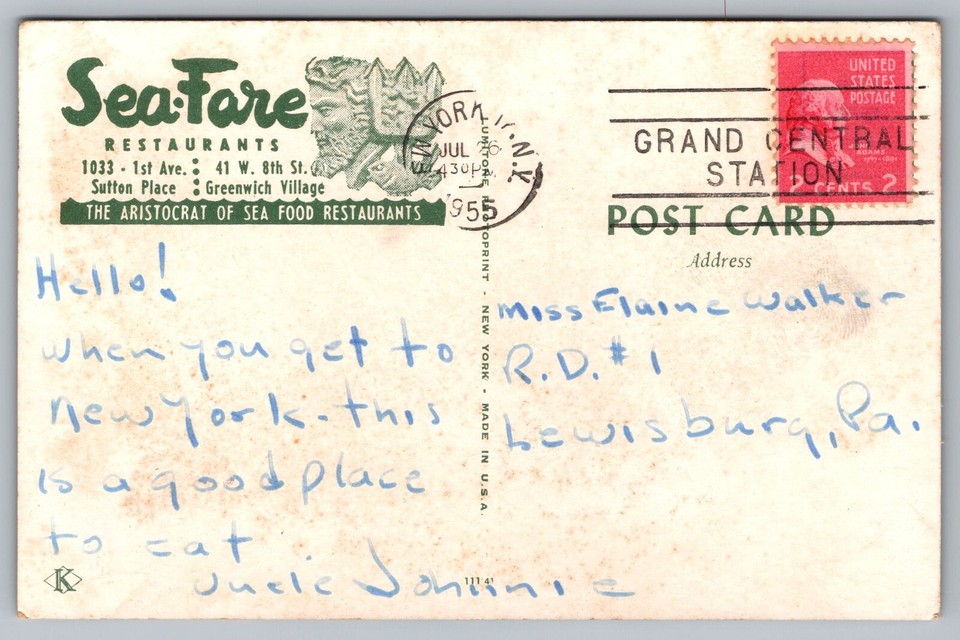 Sea-Fare
RESTAURANTS
1033 - 1st Ave. : 41 W. 8th St.
Sutton Place : Greenwich Village
THE ARISTOCRAT OF SEA FOOD RESTAURANTS
NEW YORK, N.Y.
JUL 26
430 PM
1955
GRAND CENTRAL
STATION
UNITED
STATES
POSTAGE
ADAMS
2 CENTS 2
POST CARD
Address
Hello!
when you get to
New York - this
is a good place
to eat.
Uncle Johnnie
Miss Elaine Walker
R.D. #1
Lewisburg, Pa.
PHOTOPRINT - NEW YORK - MADE IN U.S.A.
K
11141